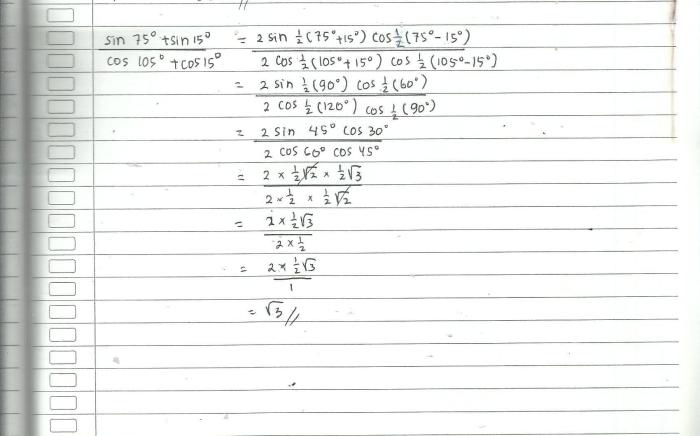 //
sin 75° + sin 15° / cos 105° + cos 15° = 2 sin ½ (75° + 15°) cos ½ (75° - 15°) / 2 cos ½ (105° + 15°) cos ½ (105° - 15°)
= 2 sin ½ (90°) cos ½ (60°) / 2 cos ½ (120°) cos ½ (90°)
= 2 sin 45° cos 30° / 2 cos 60° cos 45°
= 2 × ½√2 × ½√3 / 2 × ½ × ½√2
= 2 × ½√3 / 2 × ½
= 2 × ½√3 / 1
= √3 //